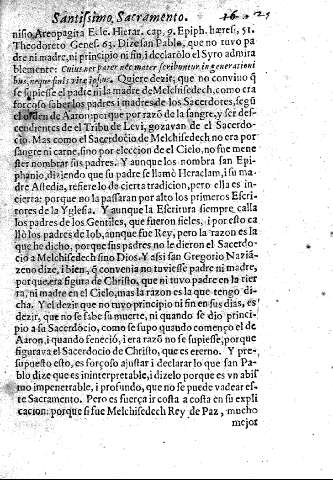 Santissimo Sacramento. 16. 25
nisio Areopagita Ecle. Hierar. cap. 9. Epiph. hæres, 51.
Theodoreto Genes. 63. Dize san Pablo, que no tuvo pa
dre ni madre, ni principio ni fin, i declarólo el Syro admira
blemente: Cuius nec pater nec mater scribuntur in generationi
bus, neque vitæ Quiere dezir; que no convino q̃
se supiesse el padre ni la madre de Melchisedech, como era
forçoso saber los padres i madres de los Sacerdotes, segũ
el orden de Aaron: que por razõ de la sangre, y ser des-
cendientes de el Tribu de Levi, gozavan de el Sacerdo-
cio. Mas como el Sacerdocio de Melchisedech no era por
sangre ni carne, sino por eleccion de el Cielo, no fue mene
ster nombrar sus padres. Y aunque los nombra san Epi-
phanio, diziendo que su padre se llamò Heraclam, i su ma
dre Astedia, refiere lo de cierta tradicion, pero ella es in-
cierta: porque no la passaran por alto los primeros Escri-
tores de la Yglesia. Y aunque la Escritura siempre calla
los padres de los Gentiles, que fueron fieles, i por esto ca
llò los padres de Iob, aunque fue Rey, pero la razon es la
que he dicho, porque sus padres no le dieron el Sacerdo-
cio a Melchisedech sino Dios. Y assi san Gregorio Naziã-
zeno dize, i bien, q̃ convenia no tuviesse padre ni madre,
porque era figura de Christo, que ni tuvo padre en la tier
ra, ni madre en el Cielo, mas la razon es la que tengo di-
cha. Y el dezir que no tuvo principio ni fin en sus dias, es
dezir, que no se sabe su muerte, ni quando se dio princi-
pio a su Sacerdocio, como se supo quando començo el de
Aaron, i quando feneciò, i era razõ no se supiesse, porque
figurava el Sacerdocio de Christo, que es eterno. Y pre-
supuesto esto, es forçoso ajustar i declarar lo que san Pa-
blo dize que es ininterpretable, i dizelo porque es vn abis
mo impenetrable, i profundo, que no se puede vadear es-
te Sacramento. Pero es fuerça ir costa a costa en su expli
cacion: porque si fue Melchisedech Rey de Paz, mucho
mejor